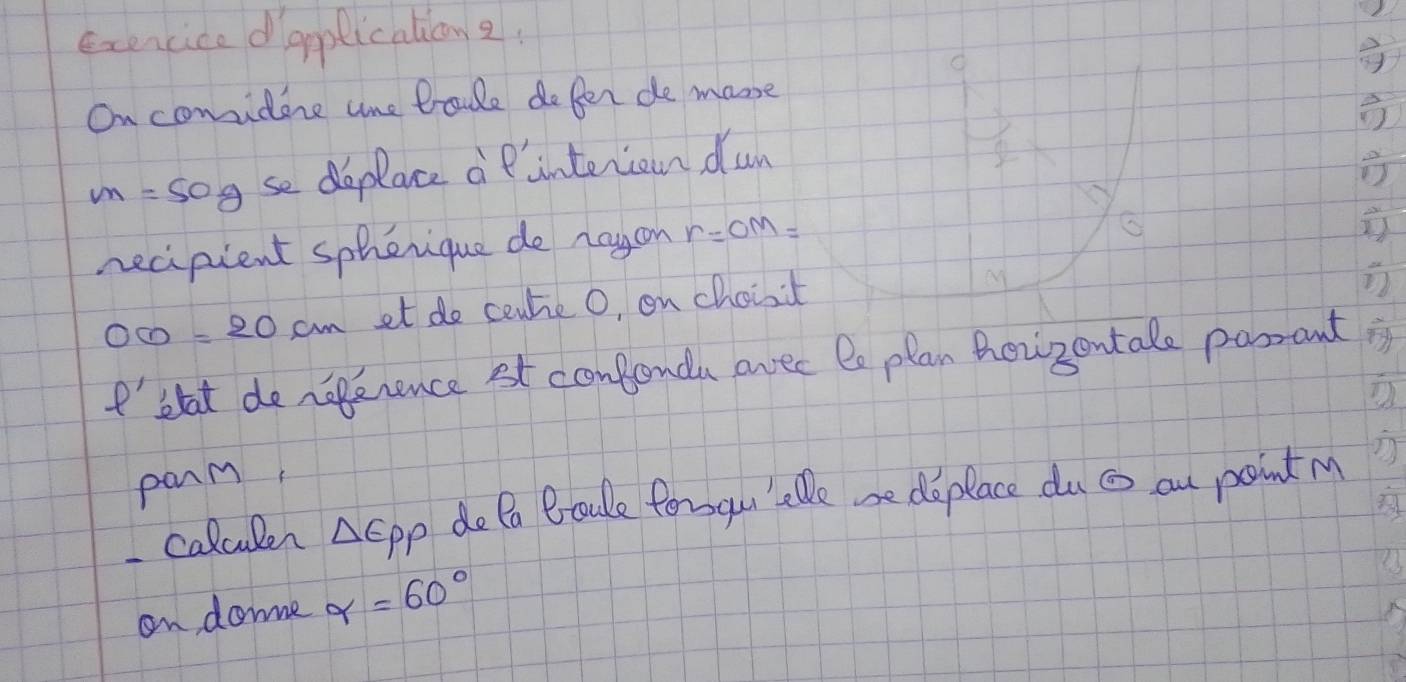 Exercice d'application 2.
On considère une boule de fer de masse
m = 50g se déplace à l'interieur d'un
recipient sphérique de rayon r = OM =
OG = 20 cm et de centre O, on choisit
l'état de référence est confondu avec le plan horizontale passant
par M.
- Calculer ΔEpp de la boule lorsqu'elle se déplace du G au point M
on donne α = 60°
O
G
M